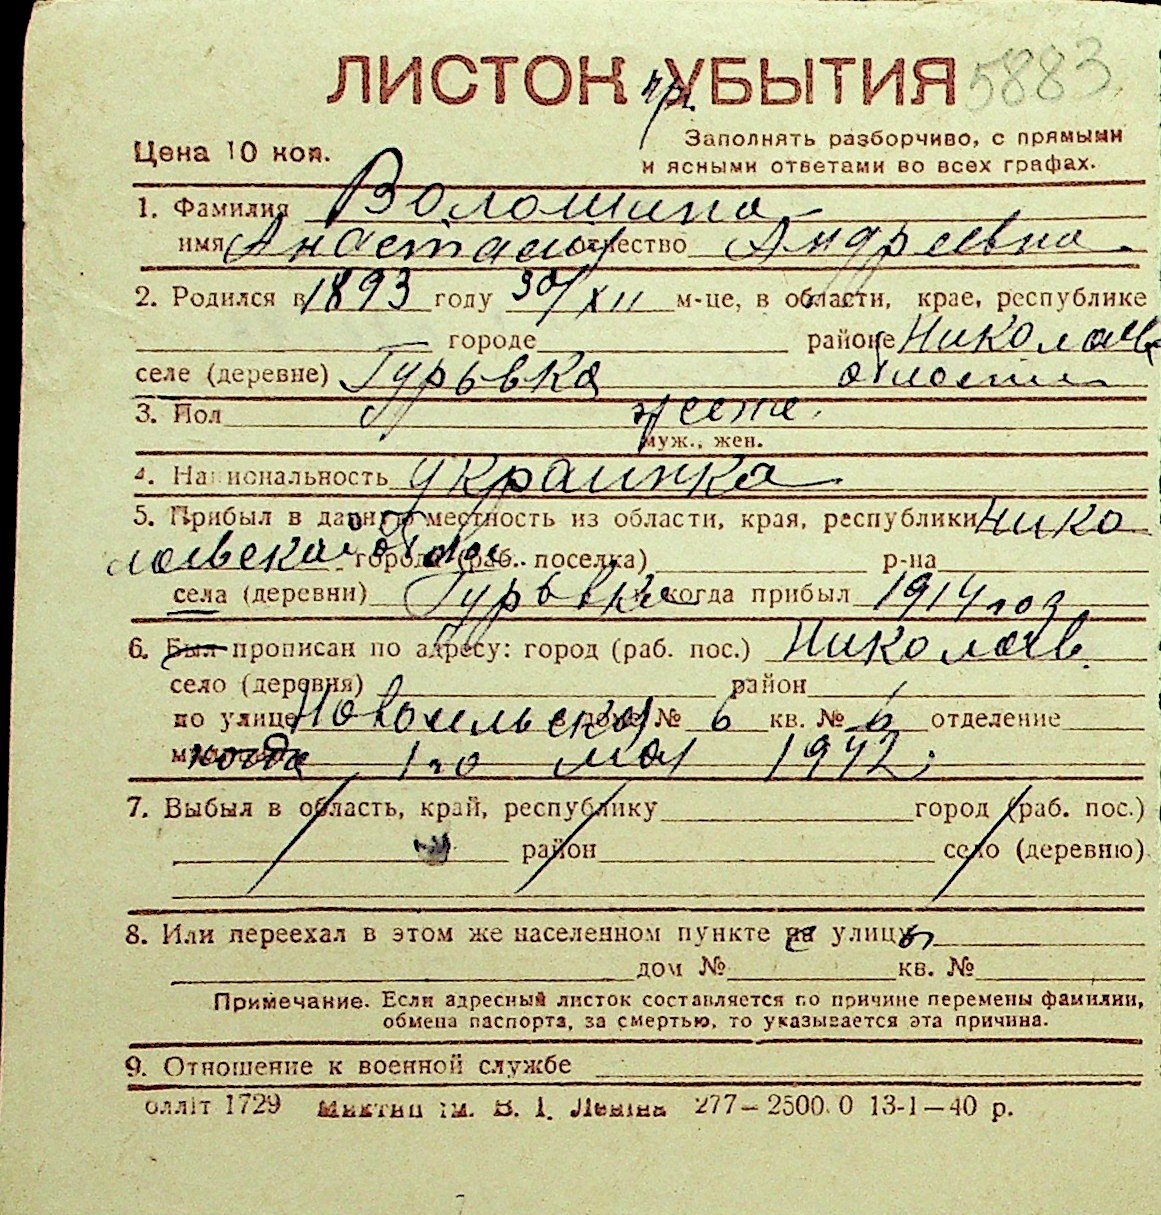 ЛИСТОК пр. УБЫТИЯ 5883
Цена 10 коп.
Заполнять разборчиво, с прямыми
и ясными ответами во всех графах.
1. Фамилия Волошина
имя Анастасия отчество Андреевна.
2. Родился в 1893 году 30/XII м-це, в области, крае, республике
городе районе Николаевск
селе (деревне) Гурьевка области
3. Пол женс.
муж., жен.
4. Национальность украинка
5. Прибыл в данную местность из области, края, республики Нико
лаевская обл города (раб. поселка) р-на
села (деревни) Гурьевка когда прибыл 1914 год
6. Был прописан по адресу: город (раб. пос.) Николаев.
село (деревня) район
по улице дом № 6 кв. № 6 отделение
когда 1го мая 1942.
7. Выбыл в область, край, республику город (раб. пос.)
район село (деревню)
8. Или переехал в этом же населенном пункте на улицу
дом № кв. №
Примечание. Если адресный листок составляется по причине перемены фамилии,
обмена паспорта, за смертью, то указывается эта причина.
9. Отношение к военной службе
олліт 1729 ім. В. І. Леніна 277—2500.0 13-1—40 р.